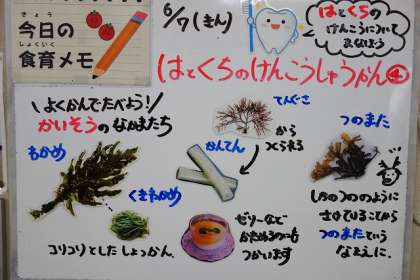 きょう
今日の
しょくいく
食育メモ
6/7(きん)
はとくちの
けんこうについて
まなぼう
はとくちのけんこうしゅうかん④
よくかんでたべよう!
かいそうのなかまたち
わかめ
くきわかめ
コリコリとしたしょっかん。
てんぐさ
から
つくられる
かんてん
ゼリーなど
かためるのにも
つかいます
つのまた
しかのつののように
さけていることから
つのまたという
なまえに。